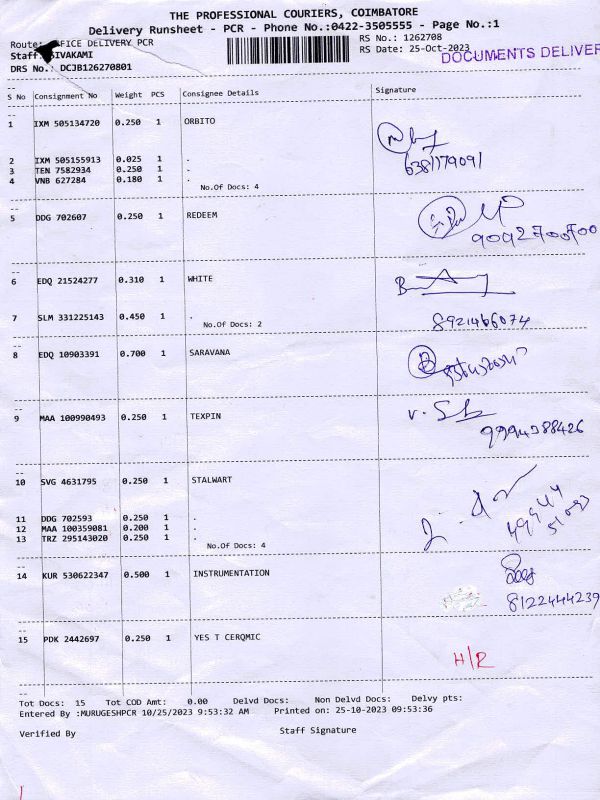 THE PROFESSIONAL COURIERS, COIMBATORE
Delivery Runsheet - PCR - Phone No.:0422-3505555 - Page No.:1
Route: OFFICE DELIVERY PCR RS No.: 1262708
Staff: SIVAKAMI RS Date: 25-Oct-2023 DOCUMENTS DELIVER
DRS No.: DCJB126270801
S No Consignment No Weight PCS Consignee Details Signature
1 IXM 505134720 0.250 1 ORBITO
6381179091
2 IXM 505155913 0.025 1 .
3 TEN 7582934 0.250 1 .
4 VNB 627284 0.180 1 .
No.Of Docs: 4
5 DDG 702607 0.250 1 REDEEM
9092700700
6 EDQ 21524277 0.310 1 WHITE
7 SLM 331225143 0.450 1 .
8921466074
No.Of Docs: 2
8 EDQ 10903391 0.700 1 SARAVANA
9 MAA 100990493 0.250 1 TEXPIN
9994388426
10 SVG 4631795 0.250 1 STALWART
11 DDG 702593 0.250 1 .
12 MAA 100359081 0.200 1 .
13 TRZ 295143020 0.250 1 .
No.Of Docs: 4
14 KUR 530622347 0.500 1 INSTRUMENTATION
8122444239
15 PDK 2442697 0.250 1 YES T CERQMIC
H/R
Tot Docs: 15 Tot COD Amt: 0.00 Delvd Docs: Non Delvd Docs: Delvy pts:
Entered By :MURUGESHPCR 10/25/2023 9:53:32 AM Printed on: 25-10-2023 09:53:36
Verified By Staff Signature